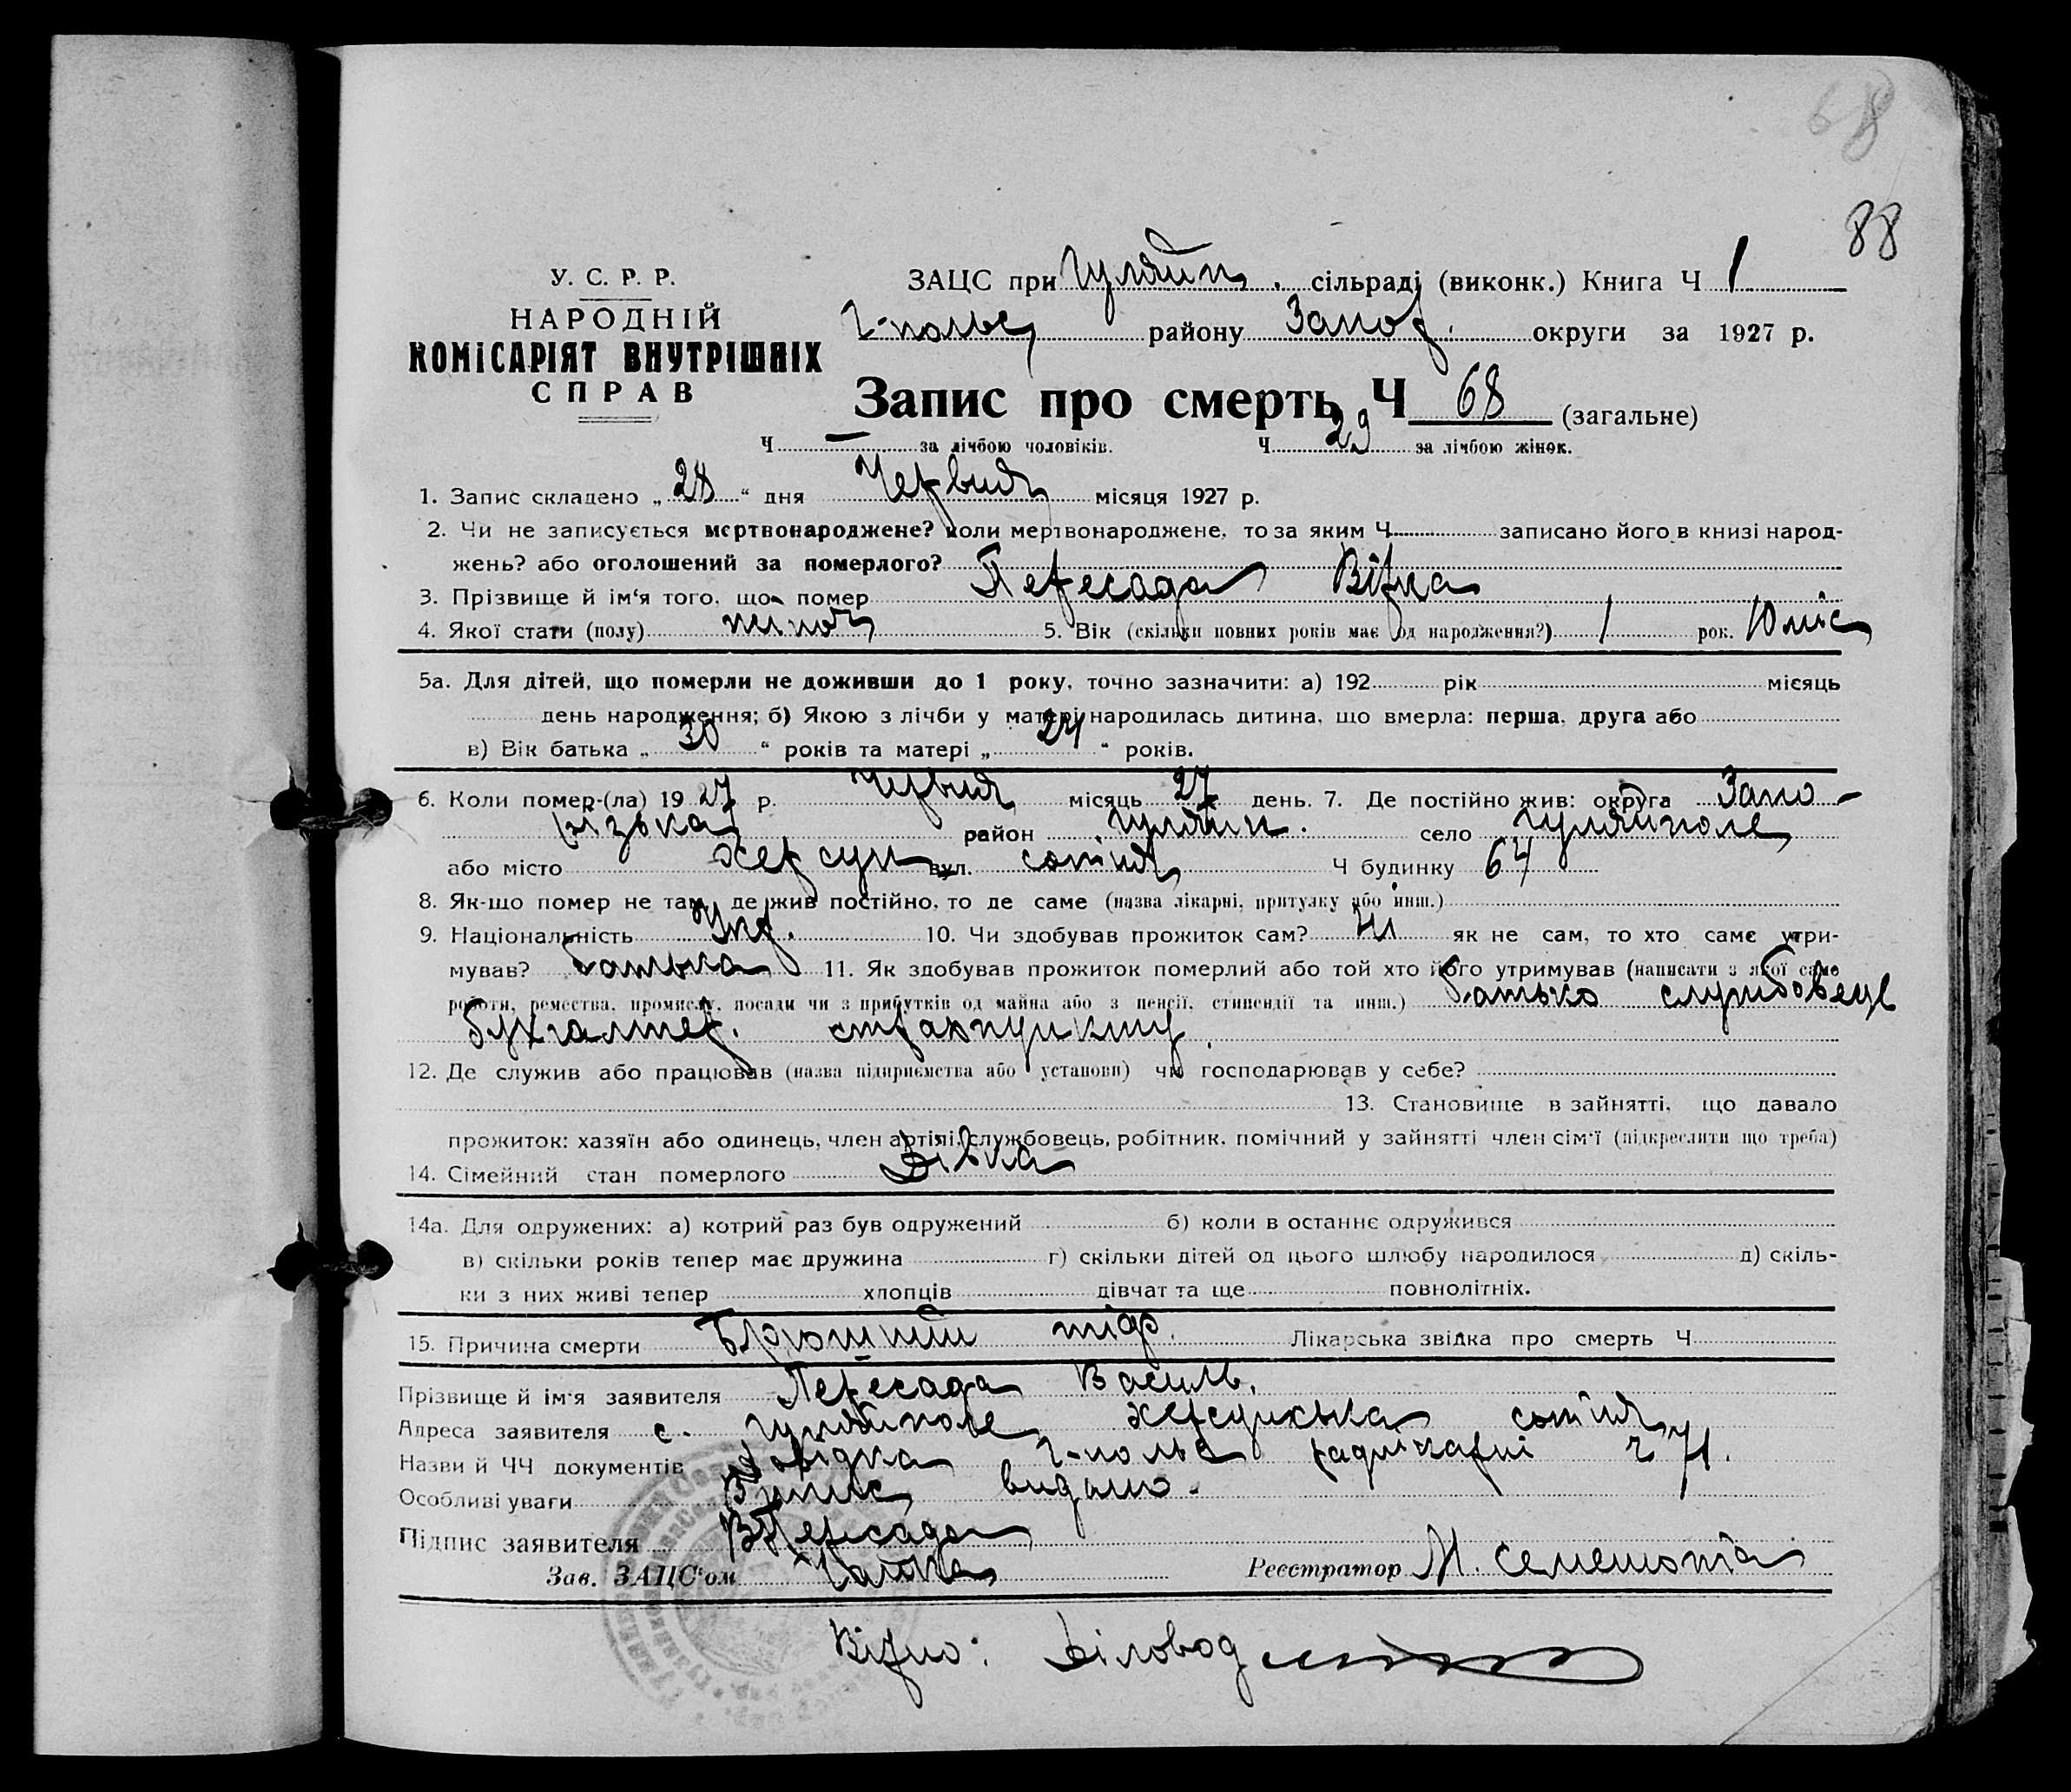 68
88
У. С. Р. Р.
НАРОДНІЙ
КОМІСАРІЯТ ВНУТРІШНІХ
СПРАВ
ЗАЦС при Гуляйп. сільраді (виконк.) Книга Ч 1
Г-польс району Запор. округи за 1927 р.
Запис про смерть Ч 68 (загальне)
Ч — за лічбою чоловіків. Ч 29 за лічбою жінок.
1. Запис складено „ 28 “ дня Червня місяця 1927 р.
2. Чи не записується мертвонароджене? коли мертвонароджене, то за яким Ч записано його в книзі народ-
жень? або оголошений за померлого?
3. Прізвище й ім'я того, що помер Пересада Вірка
4. Якої стати (полу) жіноч 5. Вік (скільки повних років має од народження?) 1 рок. 10 міс
5а. Для дітей, що померли не доживши до 1 року, точно зазначити: а) 192 рік місяць
день народження; б) Якою з лічби у матері народилась дитина, що вмерла: перша, друга або
в) Вік батька „ 30 “ років та матері „ 24 “ років.
6. Коли помер-(ла) 19 27 р. Червня місяць 27 день. 7. Де постійно жив: округа Запо-
різька район Гуляйп. село Гуляйполе
або місто Херсун вул. сотня Ч будинку 64
8. Як-що помер не там, де жив постійно, то де саме (назва лікарні, притулку або инш.)
9. Національність Укр. 10. Чи здобував прожиток сам? Ні як не сам, то хто саме утри-
мував? батько 11. Як здобував прожиток померлий або той хто його утримував (написати з якої саме
роботи, ремества, промислу, посади чи з прибутків од майна або з пенсії, стипендії та инш.) батько службовець
бухгалтер.
12. Де служив або працював (назва підприємства або установи) чи господарював у себе?
13. Становище в зайнятті, що давало
прожиток: хазяїн або одинець, член артілі, службовець, робітник, помічний у зайнятті член сім'ї (підкреслити що треба)
14. Сімейний стан померлого Дівка
14а. Для одружених: а) котрий раз був одружений б) коли в останнє одружився
в) скільки років тепер має дружина г) скільки дітей од цього шлюбу народилося д) скіль-
ки з них живі тепер хлопців дівчат та ще повнолітніх.
15. Причина смерти Брюшний тіф. Лікарська звідка про смерть Ч
Прізвище й ім'я заявителя Пересада Василь.
Адреса заявителя с. Гуляйполе Херсунська сотня
Назви й ЧЧ документів Довідка Г-польс райлікарні ч 71.
Особливі уваги Випис видано.
Підпис заявителя ВПересада
Зав. ЗАЦС'ом Реєстратор М. Семешота
Вірно: Діловод